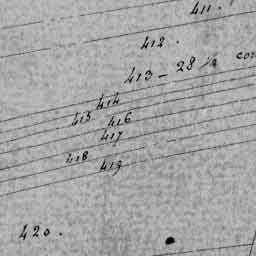 411.
412.
413 - 28 ½
414
415. 416
417
418
419
420.